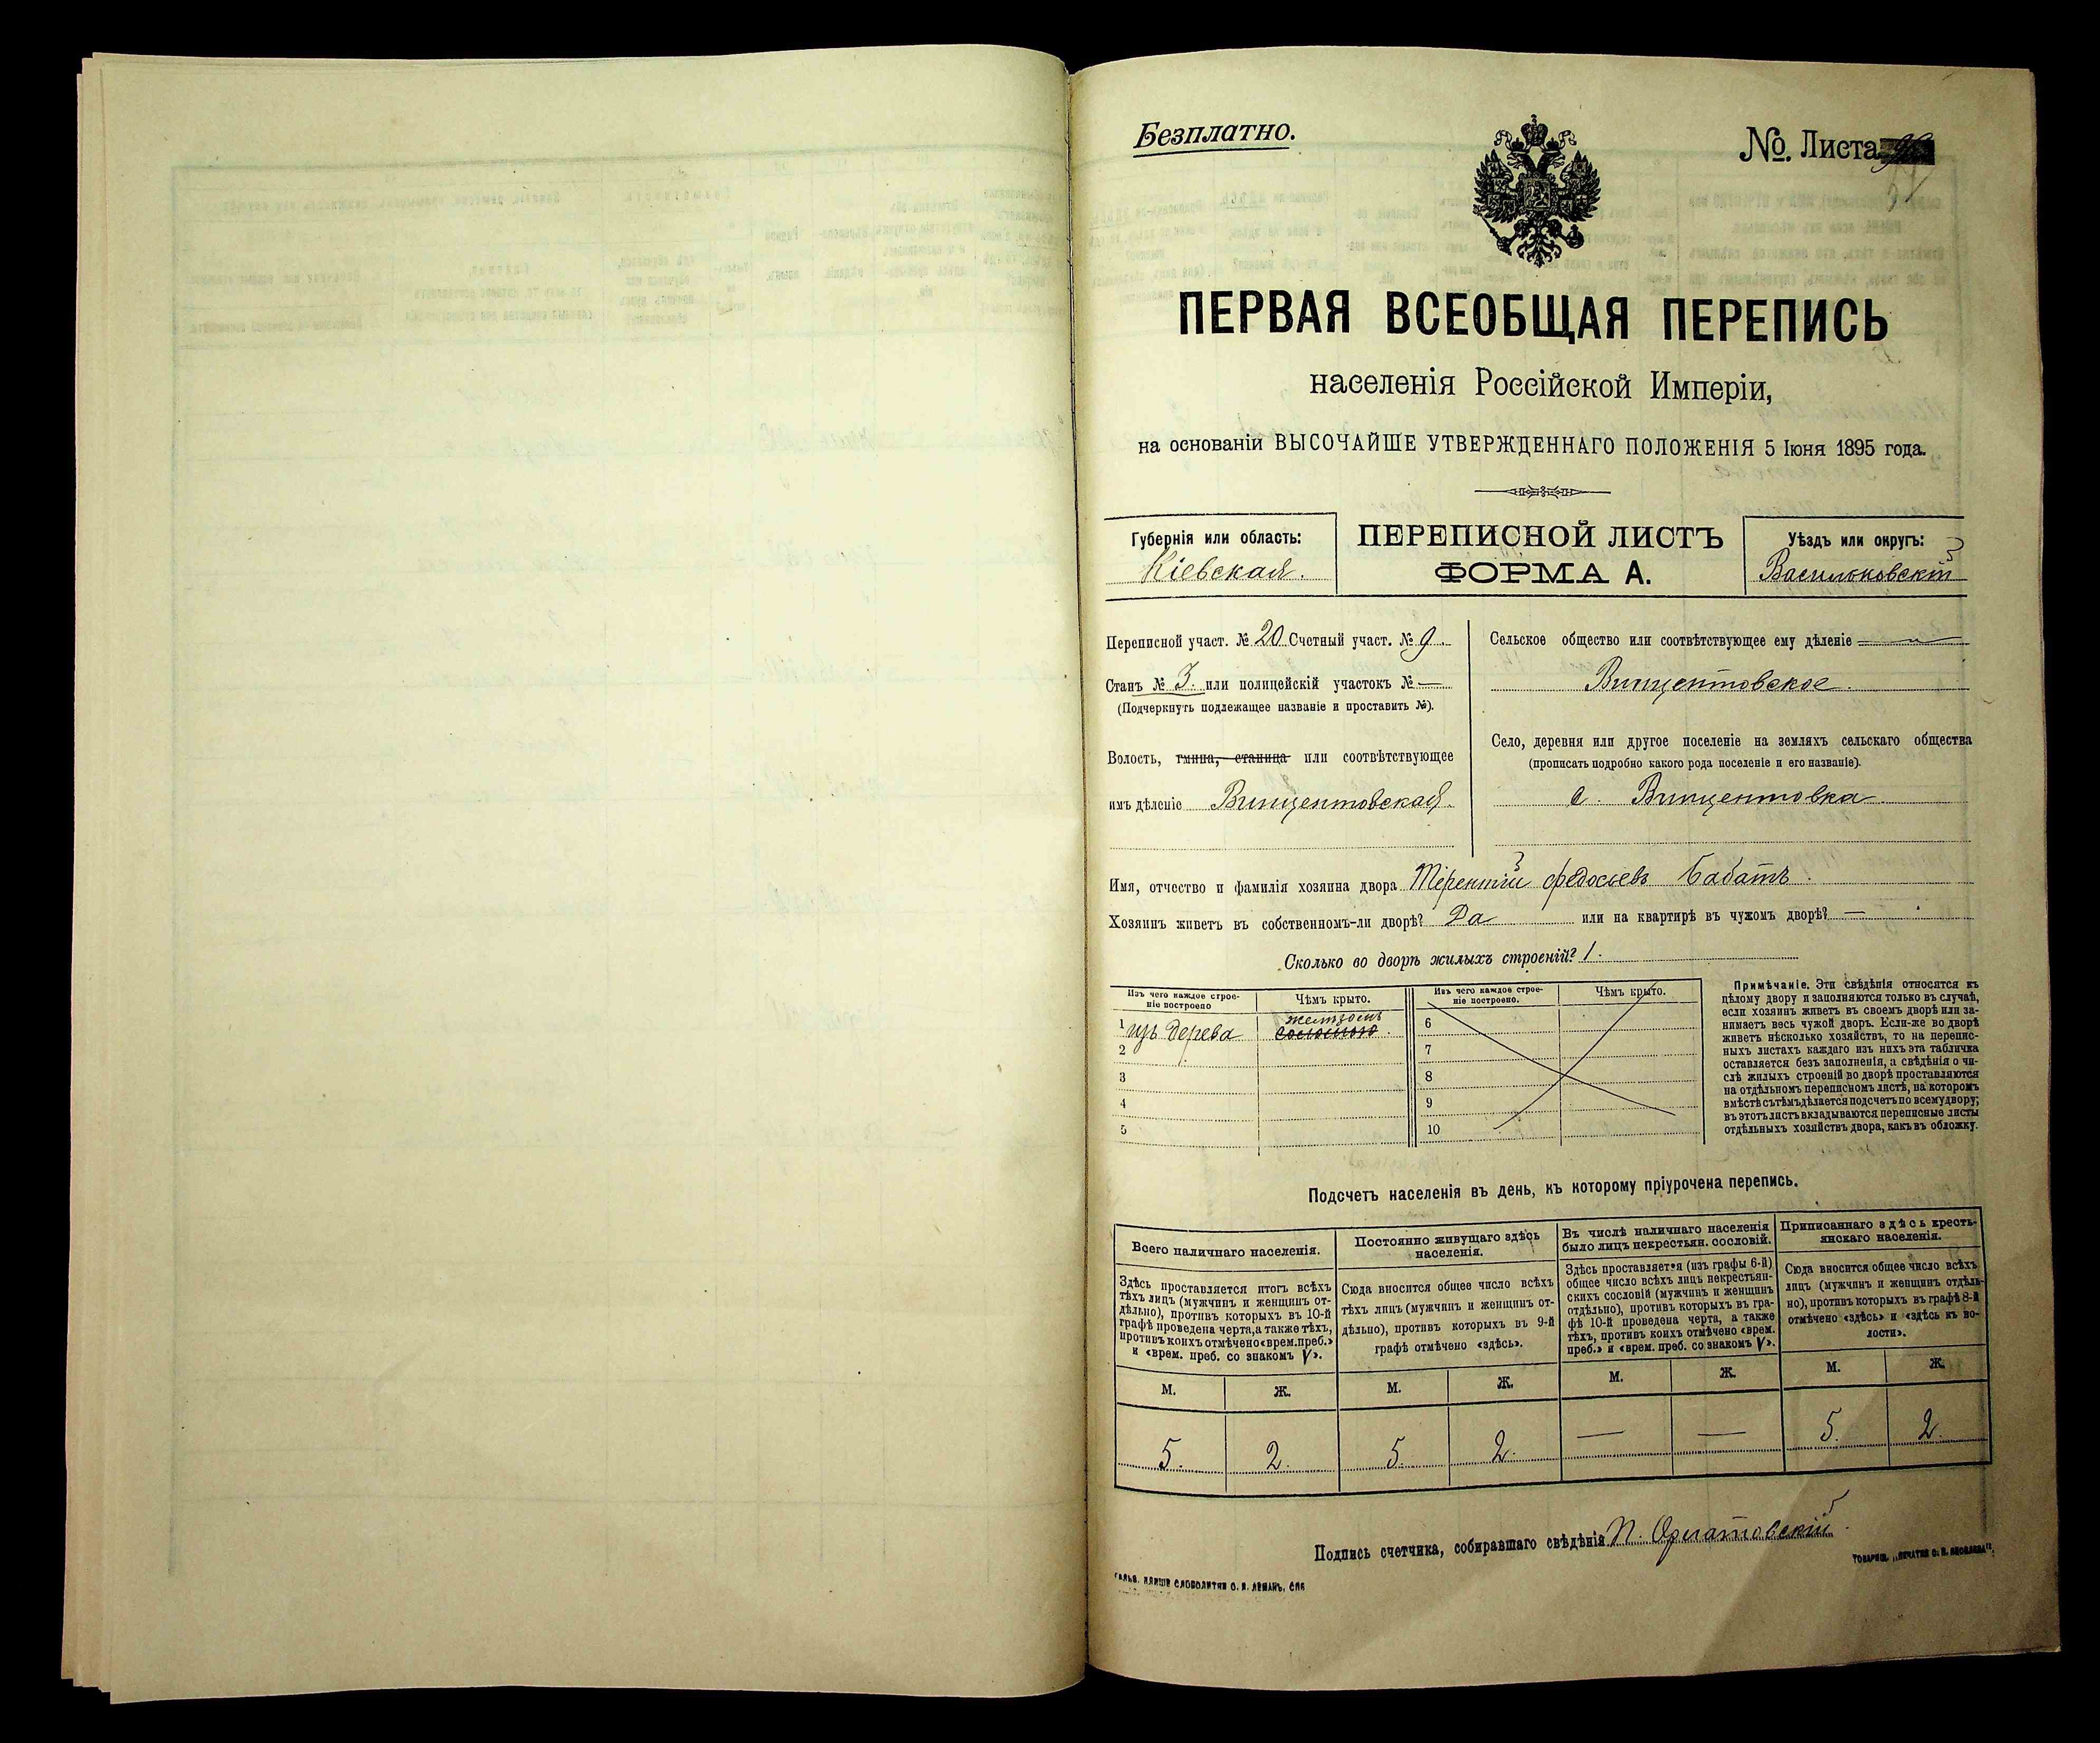 Безплатно.
№. Листа
51
ПЕРВАЯ ВСЕОБЩАЯ ПЕРЕПИСЬ
населенія Россійской Имперіи,
на основаніи ВЫСОЧАЙШЕ УТВЕРЖДЕННАГО ПОЛОЖЕНІЯ 5 Іюня 1895 года.
Губернія или область:
Кіевская.
ПЕРЕПИСНОЙ ЛИСТЪ
ФОРМА А.
Уѣздъ или округъ:
Васильковскій
Переписной участ. № 20 Счетный участ. № 9.
Станъ № 3. или полицейскій участокъ № —
(Подчеркнуть подлежащее названіе и проставить №).
Волость, гмина, станица или соотвѣтствующее
имъ дѣленіе Винцентовская.
Сельское общество или соотвѣтствующее ему дѣленіе
Винцентовское.
Село, деревня или другое поселеніе на земляхъ сельскаго общества
(прописать подробно какого рода поселеніе и его названіе).
с. Винцентовка
Имя, отчество и фамилія хозяина двора Терентій Федосіевъ Бабатъ.
Хозяинъ живетъ въ собственномъ-ли дворѣ? Да или на квартирѣ въ чужомъ дворѣ? —
Сколько во дворѣ жилыхъ строеній? 1.
Изъ чего каждое строе-
ніе построено
Чѣмъ крыто.
Изъ чего каждое строе-
ніе построено.
Чѣмъ крыто.
желѣзомъ
1 изъ дерева соломою.
2
3
4
5
6
7
8
9
10
Примѣчаніе. Эти свѣдѣнія относятся къ
цѣлому двору и заполняются только въ случаѣ,
если хозяинъ живетъ въ своемъ дворѣ или за-
нимаетъ весь чужой дворъ. Если-же во дворѣ
живетъ нѣсколько хозяйствъ, то на перепис-
ныхъ листахъ каждаго изъ нихъ эта табличка
оставляется безъ заполненія, а свѣдѣнія о чи-
слѣ жилыхъ строеній во дворѣ проставляются
на отдѣльномъ переписномъ листѣ, на которомъ
вмѣстѣ съ тѣмъ дѣлается подсчетъ по всему двору;
въ этотъ листъ вкладываются переписные листы
отдѣльныхъ хозяйствъ двора, какъ въ обложку.
Подсчетъ населенія въ день, къ которому пріурочена перепись.
Всего наличнаго населенія.
Здѣсь проставляется итогъ всѣхъ
тѣхъ лицъ (мужчинъ и женщинъ от-
дѣльно), противъ которыхъ въ 10-й
графѣ проведена черта, а также тѣхъ,
противъ коихъ отмѣчено «врем. преб.»
и «врем. преб. со знакомъ V».
Постоянно живущаго здѣсь
населенія.
Сюда вносится общее число всѣхъ
тѣхъ лицъ (мужчинъ и женщинъ от-
дѣльно), противъ которыхъ въ 9-й
графѣ отмѣчено «здѣсь».
Въ числѣ наличнаго населенія
было лицъ некрестьян. сословій.
Здѣсь проставляется (изъ графы 6-й)
общее число всѣхъ лицъ некрестьян-
скихъ сословій (мужчинъ и женщинъ
отдѣльно), противъ которыхъ въ гра-
фѣ 10-й проведена черта, а также
тѣхъ, противъ коихъ отмѣчено «врем.
преб.» и «врем. преб. со знакомъ V».
Приписаннаго здѣсь кресть-
янскаго населенія.
Сюда вносится общее число всѣхъ
лицъ (мужчинъ и женщинъ отдѣль-
но), противъ которыхъ въ графѣ 8-й
отмѣчено «здѣсь» и «здѣсь къ во-
лости».
М. Ж. М. Ж. М. Ж. М. Ж.
5. 2. 5. 2. — — 5. 2.
Подпись счетчика, собиравшаго свѣдѣнія П.